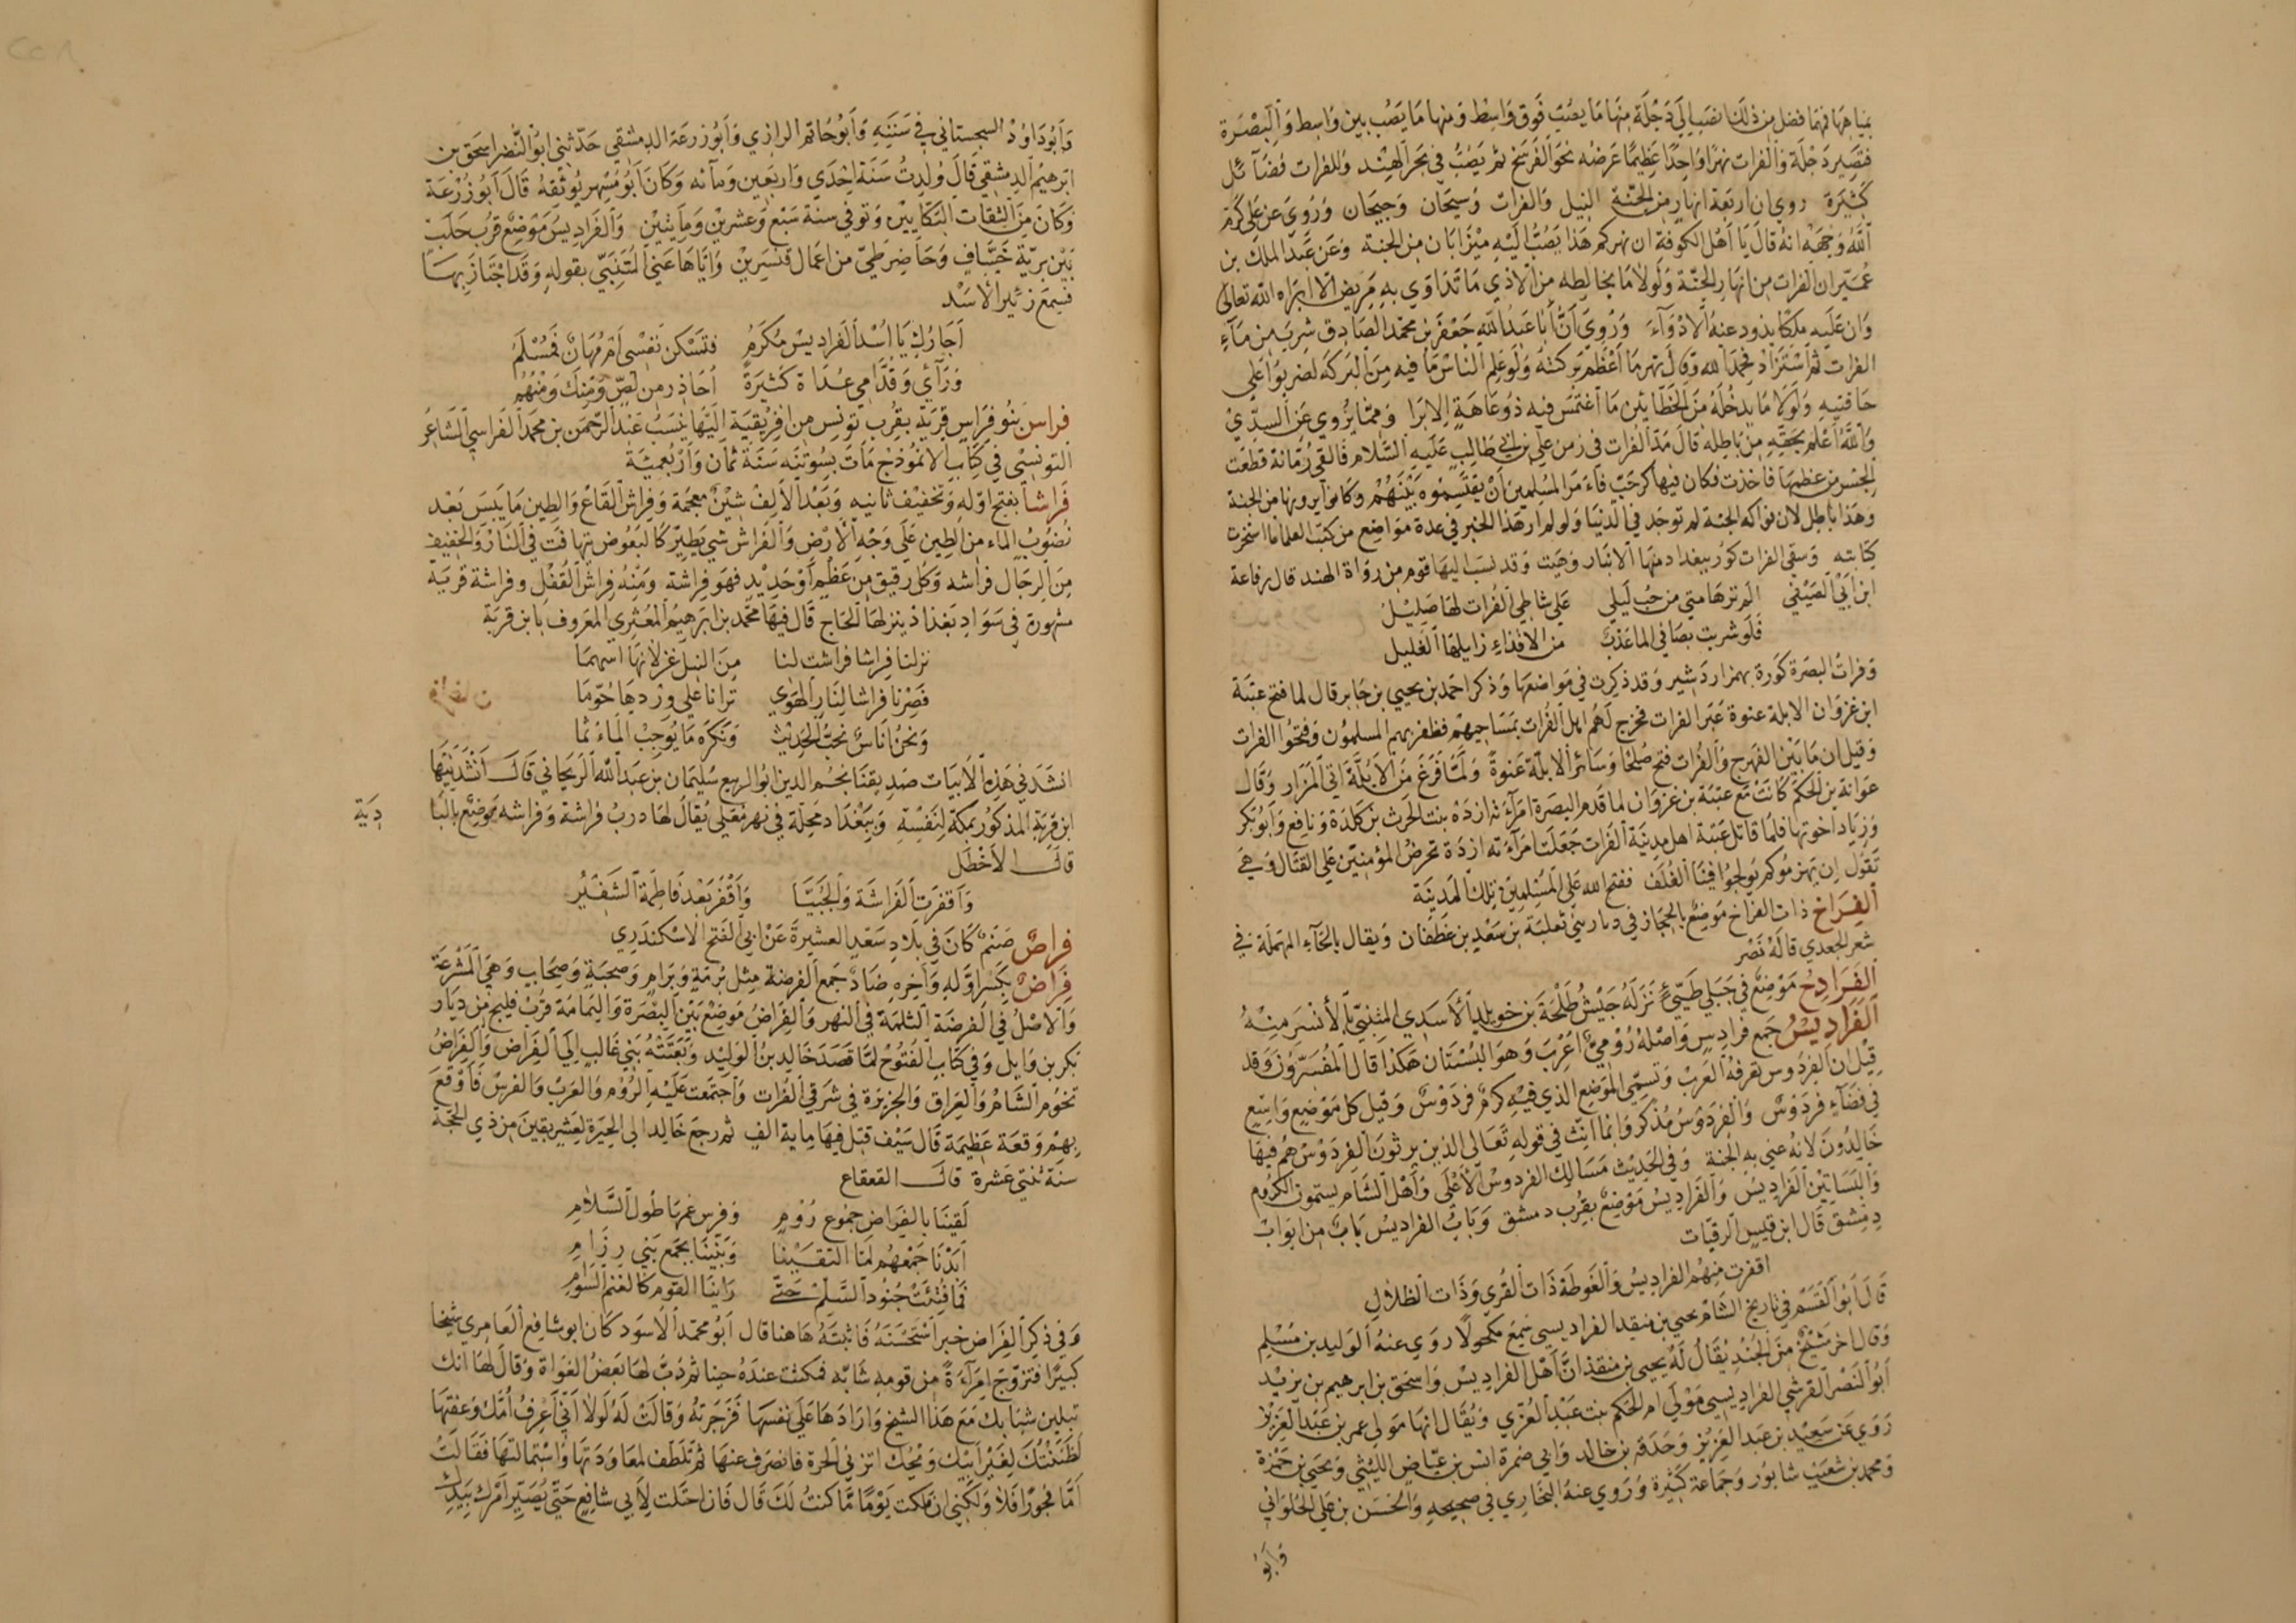 بمياهها فما فضل من ذلك انصب الي دجلة منها ما يصب فوق واسط ومنها ما يصب بين واسط والبصرة
فتصير دجلة والفرات نهرا واحدا عظيما عرضه نحو الفرسخ ثم يصب في بحر الهند وللفرات فضائل
كثيرة روي ان اربعة انهار من الجنة النيل والفرات وسيحان وجيحان وروي عن علي كرم
الله وجهه انه قال يا اهل الكوفة ان نهركم هذا يصب اليه ميزابان من الجنة وعن عبد الملك بن
عمير ان الفرات من انهار الجنة ولولا ما يخالطه من الاذي ما تداوي به مريض الا ابراه الله تعالي
وان عليه ملكا يذود عنه الادوآء وروي ان أبا عبد الله جعفر بن محمد الصادق شرب من مآء
الفرات ثم استزاد فحمد الله وقال نهر ما اعظم بركته ولو علم الناس ما فيه من البركه لضربوا علي
حافتيه ولولا ما يدخله من الخطائين ما اغتمس فيه ذو عاهة الا برا ومما يروي عن السدي
والله اعلم بحقه من باطله قال مد الفرات في زمن علي بن ابي طالب عليه السلام فالقي رمانة قطعت
الجسر من عظمها فاخذت فكان فيها كر حب فأمر المسلمين ان يقتسموه بينهم وكانوا يرونها من الجنة
وهذا باطل لان فواكه الجنة لم توجد في الدنيا ولو لم ار هذا الخبر في عدة مواضع من كتب العلما ما استخرت
كتابته وسقي الفرات كور ببغداد منها الانبار وهيت وقد نسب اليها قوم من رواة الهند قال رفاعة
ابن ابي الصيفي الم ترهامتي من حب ليلي علي شاطي الفرات لها صليل
فلو شربت بصافي الما عذب من الاقذاء زايلها الغليل
وفرات البصرة كورة بهمن اردشير وقد ذكرت في مواضعها وذكر احمد بن يحيي بن جابر قال لما فتح عتبة
ابن غزوان الابلة عنوة عبر الفرات فخرج لهم اهل الفرات بمساحيهم فظفر بهم المسلمون وفتحوا الفرات
وقيل ان ما بين الفهرج والفرات فتح صلحا وسائر الابلة عنوة ولما فرغ من الابلة اتي المزار وقال
عوانة بن الحكم كانت مع عتبة بن غزوان لما قدم البصرة امرأته ازده بنت الحرث بن كلدة ونافع وأبو بكر
وزياد اخوتها فلما قاتل عتبة اهل مدينة الفرات جعلت امرأته ازدة تحرض المؤمنين علي القتال وهي
تقول ان يهزموكم يولجوا فينا الغلف ففتح الله علي المسلمين تلك المدينة
الفراخ ذات الفراخ موضع بالحجاز في ديار بني ثعلبة بن سعد بن غطفان ويقال بالحآء المهملة في
شعر الجعدي قاله نصر
الفرادح موضع في جبلي طيئ نزله جيش طلحة بن خويلد الأسدي المتنبي بالأنسر منه
الفراديس جمع فردوس واصله رومي اعرب وهو البستان هكذا قال المفسرون وقد
قيل ان الفردوس تعرفه العرب وتسمي الموضع الذي فيه كرم فردوس وقيل كل موضع واسع
في فضآء فردوس والفردوس مذكر وانما انث في قوله تعالي الذين يرثون الفردوس هم فيها
خالدون لانه عني به الجنة وفي الحديث مسالك الفردوس الأعلي وأهل الشام يسمون الكروم
والبساتين الفراديس والفراديس موضع بقرب دمشق وباب الفراديس باب من ابواب
دمشق قال ابن قيس الرقيات
اقفرت منهم الفراديس والغوطة ذات القري وذات الظلال
قال أبو القسم في تاريخ الشام يحيي بن منقذ الفراديسي سمع مكحولا روي عنه الوليد بن مسلم
وقال اخر شيخ من الجند يقال له يحيي بن منقذ ان أهل الفراديس واسحق بن ابرهيم بن يزيد
أبو النضر القرشي الفراديسي مولي ام الحكم بنت عبد العزي ويقال انها مولي عمر بن عبد العزيز
روي عن سعيد بن عبد العزيز وحدقه بن خالد وابي ضمرة انس بن عياض الليثي ويحيي بن حمزة
ومحمد بن شعيب شابور وجماعة كثيرة وروي عنه البخاري في صحيحه والحسن بن علي الحلواني
وأبو
وأبو داود السجستاني في سننه وأبو حاتم الرازي وأبو زرعة الدمشقي حدثني ابو النضر اسحق بن
ابرهيم الدمشقي قال ولدت سنة احدي واربعين ومائه وكان أبو مسهر يوثقه قال أبو زرعة
وكان من الثقات البكايين وتوفي سنة سبع وعشرين ومايتين والفراديس موضع قرب حلب
بين برية خساف وحاضر طي من اعمال قنسرين واياها عني المتنبي بقوله وقد اجتاز بها
فسمع زئير الاسد
أجارك يا اسد الفراديس مكرم فتسكن نفسي ام مهان فمسلم
ورآئي وقدامي عداة كثيرة احاذر من لص ومنك ومنهم
فراس بنو فراس قرية بقرب تونس من افريقية اليها ينسب عبد الرحمن بن محمد الفراسي الشاعر
التونسي في كتاب الانموذج مات بسوتنه سنة ثمان واربعمئة
فراشا بفتح اوله وتخفيف ثانيه وبعد الالف شين معجمة وفراش القاع والطين ما يبس بعد
نضوب الماء من الطين علي وجه الارض والفراش شي يطير كالبعوض يتهافت في النار والخفيف
من الرجال فراشه وكل رقيق من عظم او حديد فهو فراشة ومنه فراش القفل وفراشة قرية
مشهورة في سواد بغداد ينزلها الحاج قال فيها محمد بن ابرهيم المعثري المعروف بابن قربة
نزلنا فراشا فراشت لنا من النبل غزلانها اسهما
فصرنا فراشا لنار الهوي ترانا علي وردها حوما
ونحن اناس نحب الحديث ونكره ما يوجب الماء ثما
انشدني هذه الأبيات صديقنا نجم الدين ابو الربيع سليمان بن عبد الله الريحاني قال انشدنيها
ابن قربة المذكور بمكة لنفسه وببغداد محلة في نهر معلي يقال لها درب فراشة وفراشه موضع بالبا
دية
قال الاخطل
وأقفرت الفراشة والحبيا وأقفر بعد فاطمة الشفير
فراص صنم كان في بلاد سعد العشيرة عن ابي الفتح الاسكندري
فراض بكسر اوله وآخره ضاد جمع الفرضة مثل برمة وبرام وصحبة وصحاب وهي المشرعة
والاصل في الفرضة الثلمة في النهر والفراض موضع بين البصرة واليمامة قرب فليج من ديار
بكر بن وايل وفي كتاب الفتوح لما قصد خالد بن الوليد وبعثته بني غالب الي الفراض والفراض
تخوم الشام والعراق والجزيرة في شرقي الفرات واجتمعت عليه الروم والعرب والفرس فأوقع
بهم وقعة عظيمة قال سيف قتل فيها ماية الف ثم رجع خالد الي الحيرة لعشر بقين من ذي الحجة
سنة ثنتي عشرة قال القعقاع
لقينا بالفراض جموع روم وفرس غمها طول السلام
أبدنا جمعهم لما التقينا وبيتنا بجمع بني رزام
فما فتئت جنود السلم حتي راينا القوم كالغنم السوام
وفي ذكر الفراض خبر استحسنه فاثبته هاهنا قال أبو محمد الاسود كان ابو شافع العامري شيخا
كبيرا فتزوج امرأة من قومه شابه فمكثت عنده حينا ثم دب لها بعض الغواة وقال لها انك
تبلين شبابك مع هذا الشيخ وارادها علي نفسها فزجرته وقالت له لولا اني اعرف امك وعفتها
لظننتك لغير ابيك ويحك اتزني الحرة فانصرف عنها ثم تلطف لمعاودتها واستمالتها فقالت
أما فجورا فلا ولكني ان ملكت يوما ما كنت لك قال فان احتلت لأبي شافع حتي يصير امرك بيدك